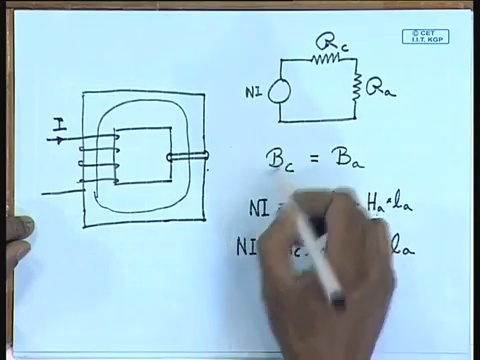 © CET
I.I.T. KGP
R_c
I
NI
R_a
B_c = B_a
NI = H_a * l_a
NI l_a